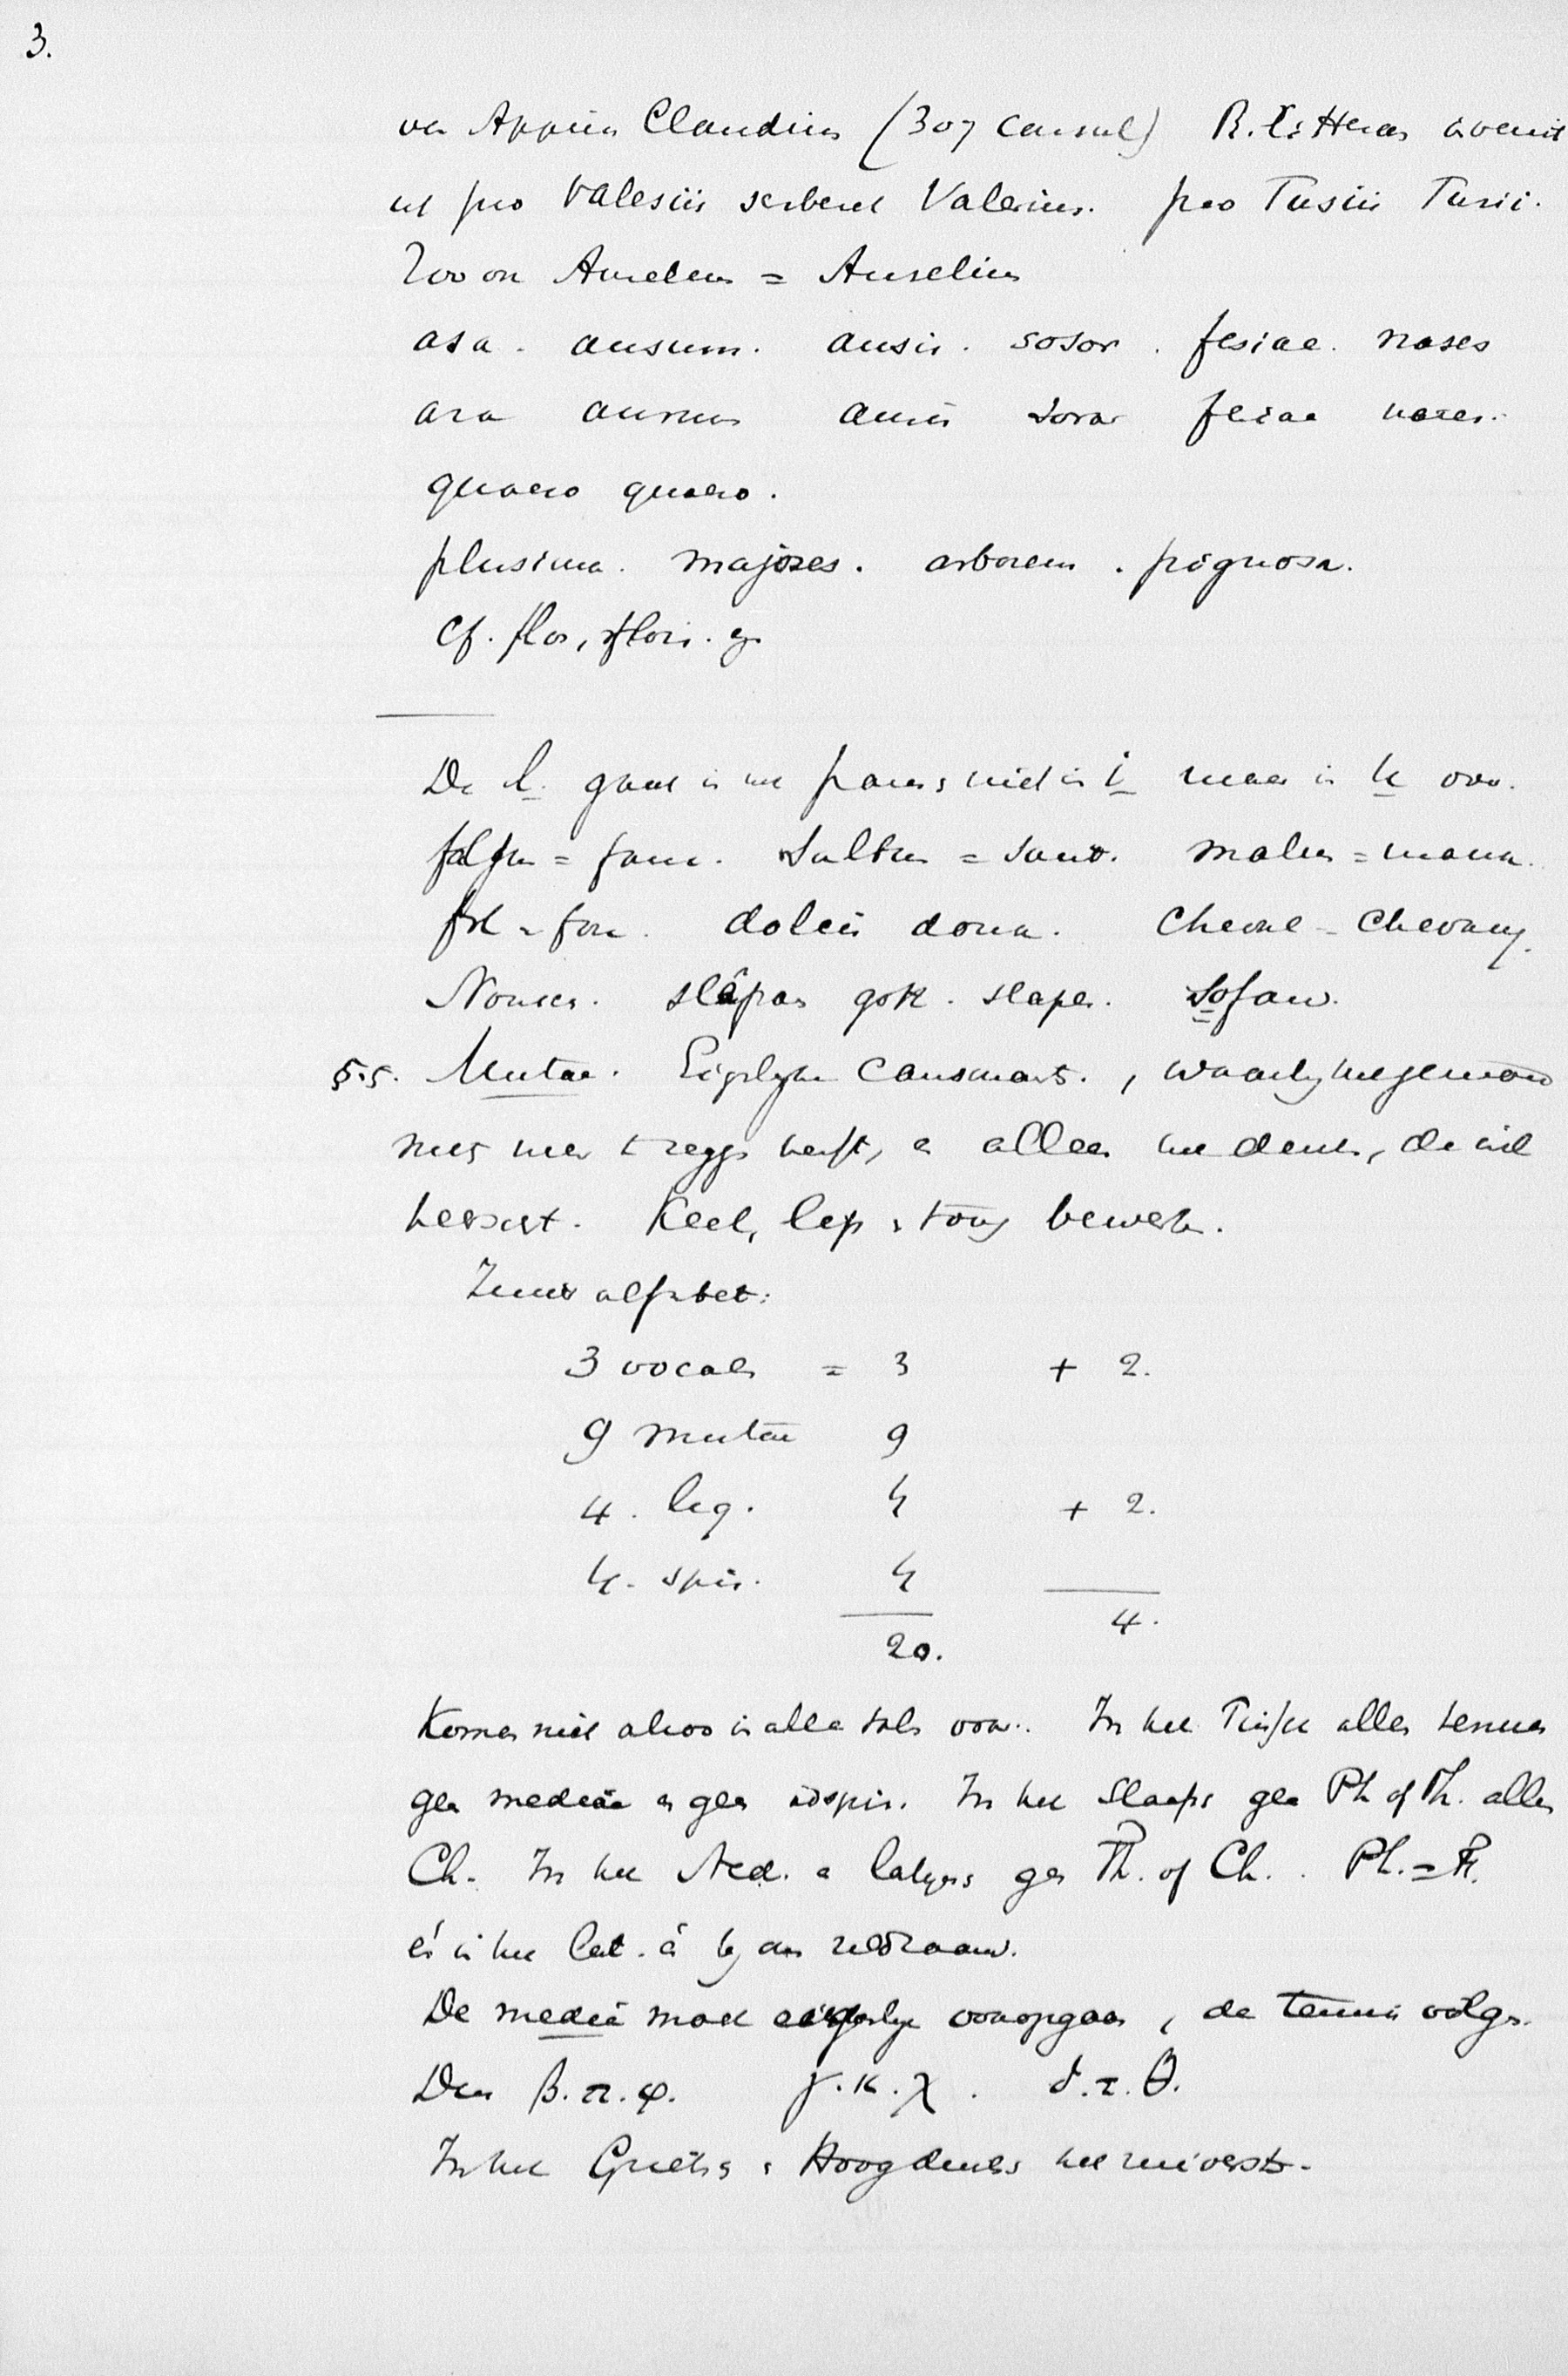 3.
van Appius Claudius (307 Consul) R. litteram invenit
ut pro Valesiis scriberet Valerius. pro Fusiis Furii.
Zoo ook Aurelius = Auselius
asa. ausum. ausis. sosor. fesiae. nases
ara aurum auris soror feriae nares.
quaeso quaero.
plusima. majoses. arbosem. pignosa.
Cf. flos, floris.
De l. gaat in het frans niet in i maar in u over.
falsus = faux. Saltus = saut. malus = mauv.
fol = fou. dolcis doux. Cheval = Chevaux.
slêpan goth. slapen.
§.5. Mutae. Eigenlyke Consonant., waarby het gemoed
niets meer te zeggen heeft, en alleen het denken, de wil
heerscht. Keel, lip en tong bewerk.
Zuiver alfabet:
3 vocalen = 3 + 2.
9 mutae 9
4. liq. 4 + 2.
4. spir. 4
20. 4.
Komen niet alzoo in alle talen voor. In het alleen tenues
geen mediae en geen aspir. In het Slaafs geen Ph of Th. alleen
Ch. In het Ned. en Latyns geen Th. of Ch. Ph. = F.
en in het Lat. is by ons zeldzaam.
De media moet eigenlyk voorop gaan, de tenuis volgen.
Dus β. π. φ. γ. κ. χ. δ. τ. θ.
In het Grieks en Hoogduits het zuiverst.